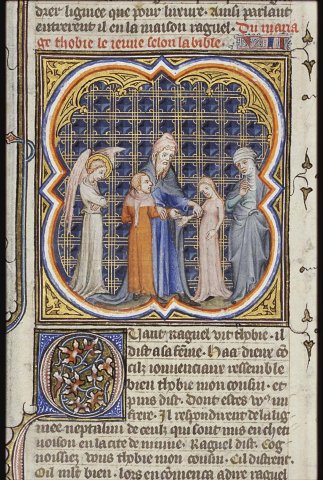 dier lignnee que pour luxure. Ainsi parlant
entrerent il en la maison raguel. Du maria
ge thobie le ieune selon la bible.
Quant raguel vit thobie. il
dist a sa feme. Haa dieux cō
cilz iouuenciaux ressemble
bien thobie mon cousin. et
puis dist. dont estes v
frere. Il respondirent de la lig
nnee neptalim de ceulz qui sont mis en chetī
uoison en la cite de niniue. Raguel dist. Cog
noissiez vous thobie mon cousin. Cil distrent.
Oil mlt bien. lors en cōmenca adire raguel